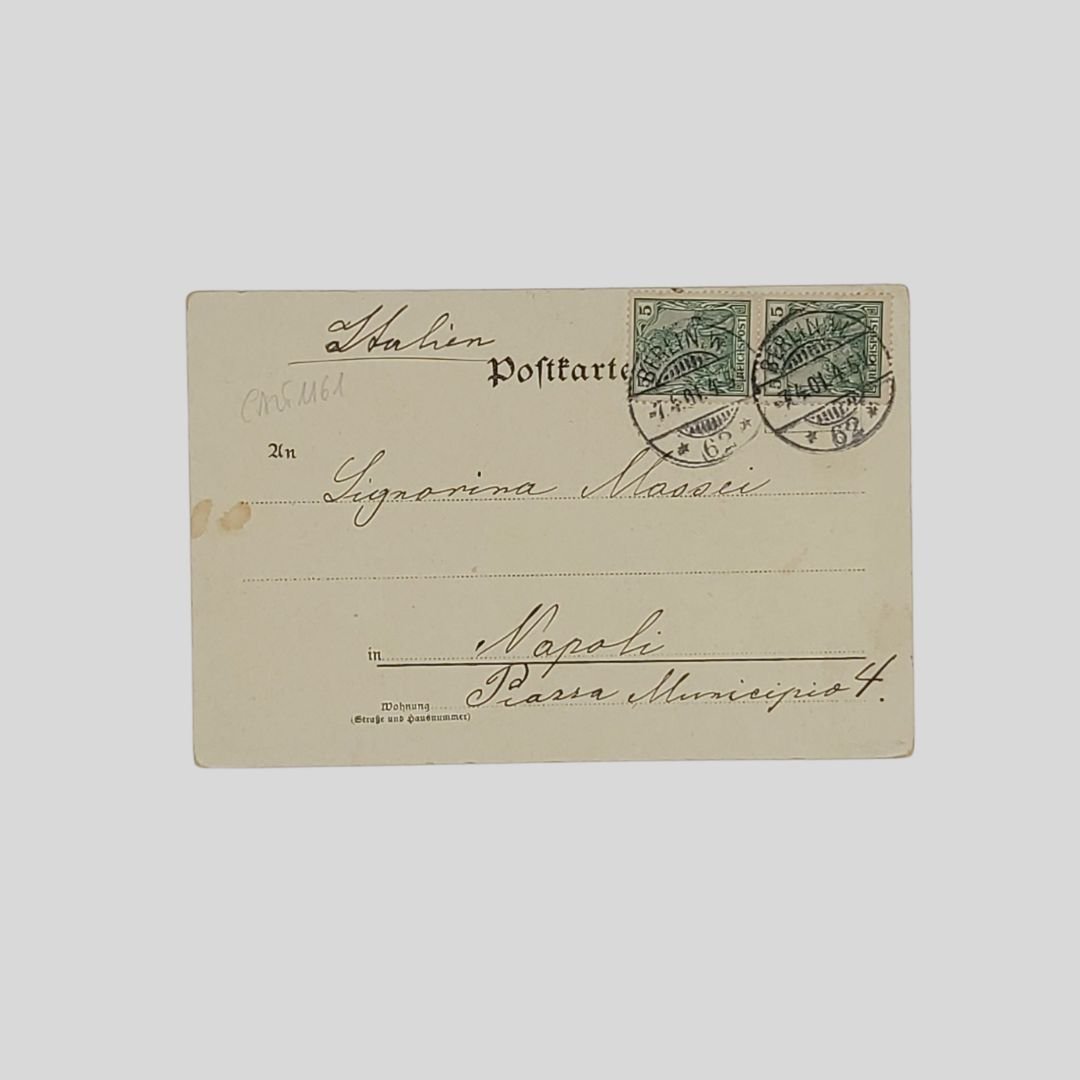 Italien
Postkarte
5 REICHSPOST
5 REICHSPOST
BERLIN. W.
7.4.01. 4-5
62
BERLIN. W.
7.4.01. 4-5
62
An
Signorina Massei
in Napoli
Piazza Municipio 4.
Wohnung
(Straße und Hausnummer)